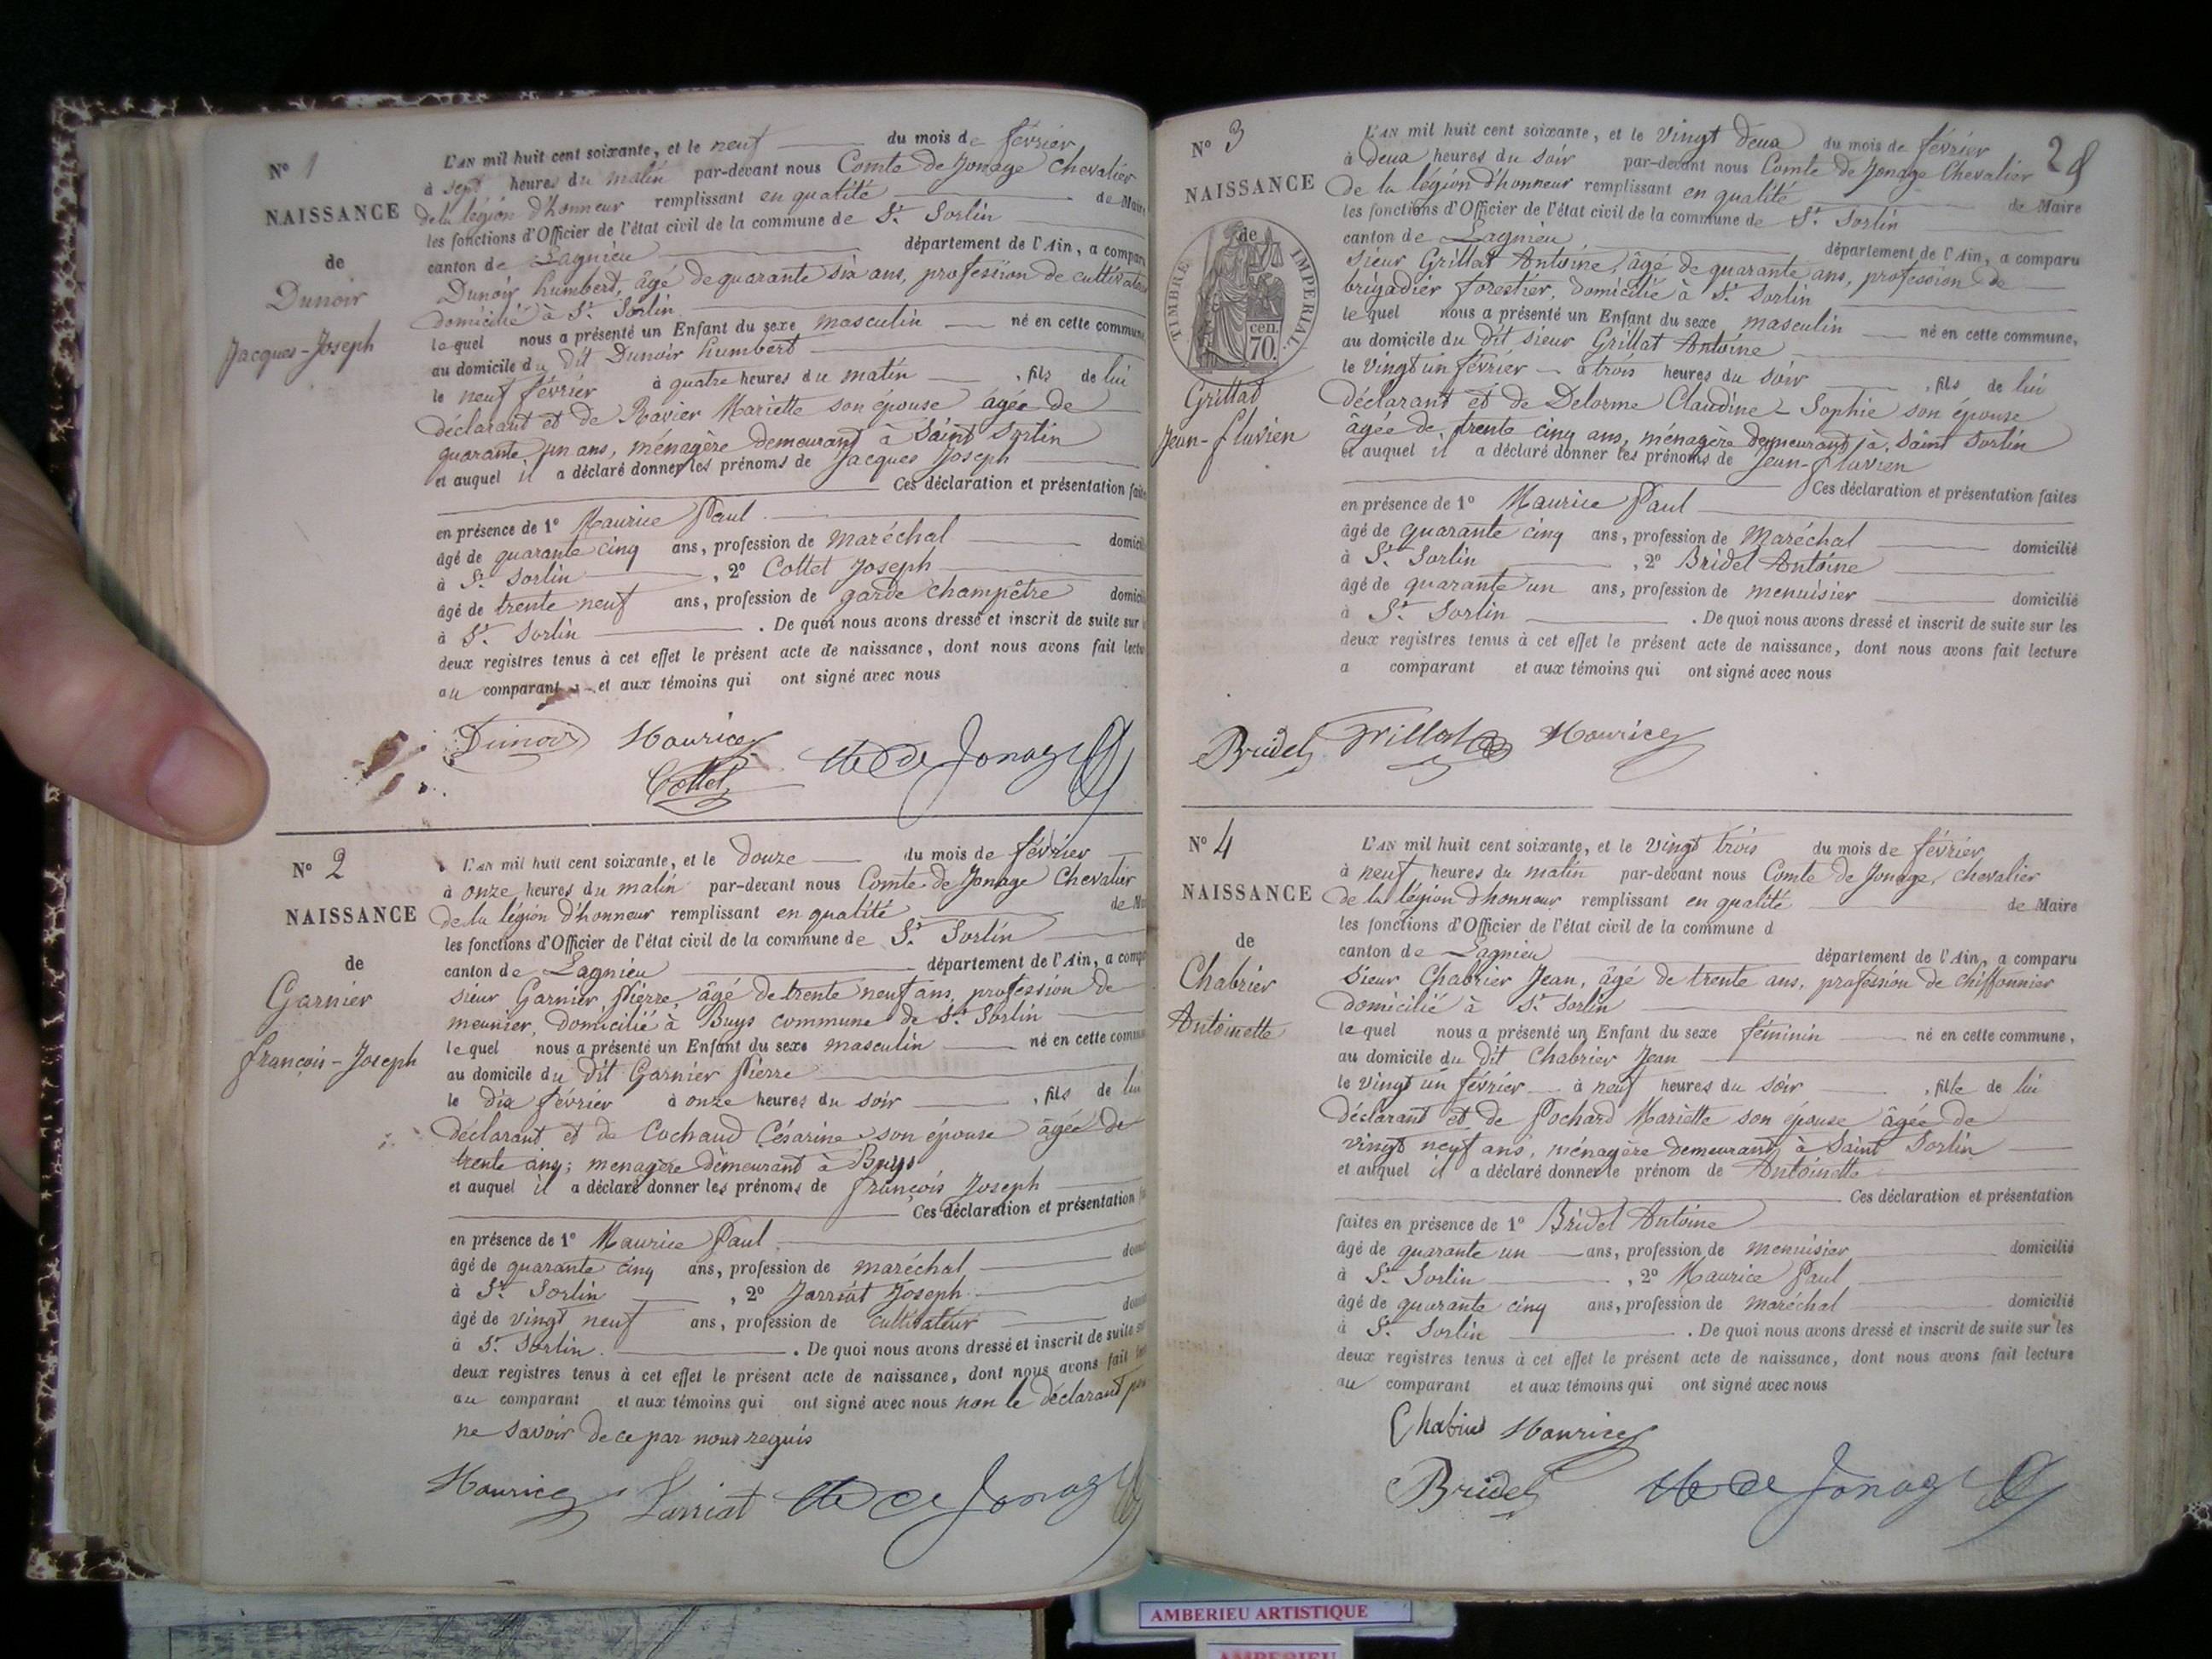 N° 1
NAISSANCE
de
Dunoir
Jacques-Joseph
L'AN mil huit cent soixante, et le neuf du mois de février
à sept heures du matin par-devant nous Comte de Jonage Chevalier
de la légion d'honneur remplissant en qualité de Maire
les fonctions d'Officier de l'état civil de la commune de St. Sorlin
canton de Lagnieu département de l'Ain, a comparu
Dunoir humbert, âgé de quarante six ans, profession de cultivateur
domicilié à St. Sorlin
lequel nous a présenté un Enfant du sexe masculin né en cette commune,
au domicile du dit Dunoir humbert
le neuf février à quatre heures du matin, fils de lui
déclarant et de Ravier Mariette son épouse âgée de
quarante un ans, ménagère demeurant à Saint Sorlin
et auquel il a déclaré donner les prénoms de Jacques Joseph
Ces déclaration et présentation faites
en présence de 1° Maurice Paul
âgé de quarante cinq ans, profession de maréchal domicilié
à St. Sorlin, 2° Cottet Joseph
âgé de trente neuf ans, profession de garde champêtre domicilié
à St. Sorlin. De quoi nous avons dressé et inscrit de suite sur
deux registres tenus à cet effet le présent acte de naissance, dont nous avons fait lecture
au comparant et aux témoins qui ont signé avec nous
Dunoir Maurice Cte de Jonage
Cottet
N° 2
NAISSANCE
de
Garnier
françois-Joseph
L'AN mil huit cent soixante, et le douze du mois de février
à onze heures du matin par-devant nous Comte de Jonage Chevalier
de la légion d'honneur remplissant en qualité de
les fonctions d'Officier de l'état civil de la commune de St. Sorlin
canton de Lagnieu département de l'Ain, a
sieur Garnier Pierre, âgé de trente neuf ans, profession de
meunier, domicilié à Buys commune de St. Sorlin
lequel nous a présenté un Enfant du sexe masculin né en cette
au domicile du dit Garnier Pierre
le dix février à onze heures du soir, fils de lui
déclarant et de Cochaud Césarine son épouse âgée de
trente ans; menagère demeurant à Buys
et auquel il a déclaré donner les prénoms de françois Joseph
Ces déclaration et présentation
en présence de 1° Maurice Paul
âgé de quarante cinq ans, profession de maréchal
à St. Sorlin, 2° Jarriat Joseph
âgé de vingt neuf ans, profession de cultivateur
à St. Sorlin. De quoi nous avons dressé et inscrit de suite
deux registres tenus à cet effet le présent acte de naissance, dont nous avons fait
au comparant et aux témoins qui ont signé avec nous non le déclarant
ne savoir de ce par nous requis
Maurice Jarriat Cte de Jonage
28
N° 3
NAISSANCE
de
TIMBRE IMPERIAL
cen.
70.
Grillat
Jean-fluvien
L'AN mil huit cent soixante, et le vingt deux du mois de février
à deux heures du soir par-devant nous Comte de Jonage Chevalier
de la légion d'honneur remplissant en qualité de Maire
les fonctions d'Officier de l'état civil de la commune de St. Sorlin
canton de Lagnieu département de l'Ain, a comparu
sieur Grillat Antoine, âgé de quarante ans, profession de
brigadier forestier, domicilié à St. Sorlin
lequel nous a présenté un Enfant du sexe masculin né en cette commune,
au domicile du dit sieur Grillat Antoine
le vingt un février à trois heures du soir, fils de lui
déclarant et de Delorme Claudine-Sophie son épouse
âgée de trente cinq ans, ménagère demeurant à Saint Sorlin
et auquel il a déclaré donner les prénoms de Jean-fluvien
Ces déclaration et présentation faites
en présence de 1° Maurice Paul
âgé de quarante cinq ans, profession de Maréchal domicilié
à St. Sorlin, 2° Bridel Antoine
âgé de quarante un ans, profession de menuisier domicilié
à St. Sorlin. De quoi nous avons dressé et inscrit de suite sur les
deux registres tenus à cet effet le présent acte de naissance, dont nous avons fait lecture
a comparant et aux témoins qui ont signé avec nous
Bridel Grillat Maurice
N° 4
NAISSANCE
de
Chabrier
Antoinette
L'AN mil huit cent soixante, et le vingt trois du mois de février
à neuf heures du matin par-devant nous Comte de Jonage, chevalier
de la légion d'honneur remplissant en qualité de Maire
les fonctions d'Officier de l'état civil de la commune d
canton de Lagnieu département de l'Ain, a comparu
sieur Chabrier Jean, âgé de trente ans, profession de chiffonnier
domicilié à St. Sorlin
lequel nous a présenté un Enfant du sexe féminin né en cette commune,
au domicile du dit Chabrier Jean
le vingt un février à neuf heures du soir, fille de lui
déclarant et de Pochard Mariette son épouse âgée de
vingt neuf ans, ménagère demeurant à Saint Sorlin
et auquel il a déclaré donner le prénom de Antoinette
Ces déclaration et présentation
faites en présence de 1° Bridel Antoine
âgé de quarante un ans, profession de menuisier domicilié
à St. Sorlin, 2° Maurice Paul
âgé de quarante cinq ans, profession de maréchal domicilié
à St. Sorlin. De quoi nous avons dressé et inscrit de suite sur les
deux registres tenus à cet effet le présent acte de naissance, dont nous avons fait lecture
au comparant et aux témoins qui ont signé avec nous
Chabrier Maurice
Bridel Cte de Jonage
AMBERIEU ARTISTIQUE
AMBERIEU